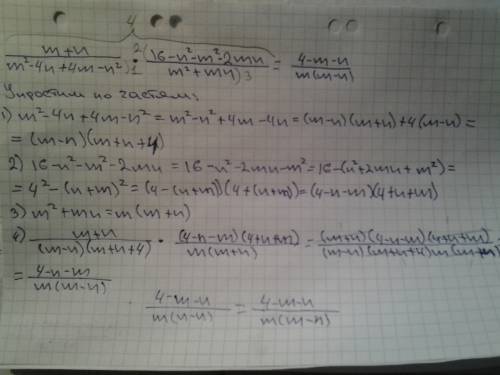 4
m+n / m²-4n+4m-n² · 16-n²-m²-2mn / m²+mn = 4-m-n / m(m-n)
1 2 3
Упростим по частям:
1) m²-4n+4m-n² = m²-n²+4m-4n = (m-n)(m+n)+4(m-n) =
= (m-n)(m+n+4)
2) 16-n²-m²-2mn = 16-n²-2mn-m² = 16-(n²+2mn+m²) =
= 4²-(n+m)² = (4-(n+m))(4+(n+m)) = (4-n-m)(4+n+m)
3) m²+mn = m(m+n)
4) m+n / (m-n)(m+n+4) · (4-n-m)(4+n+m) / m(m+n) = (m+n)(4-n-m)(4+n+m) / (m-n)(m+n+4)m(m+n) =
= 4-n-m / m(m-n)
4-m-n / m(m-n) = 4-m-n / m(m-n)